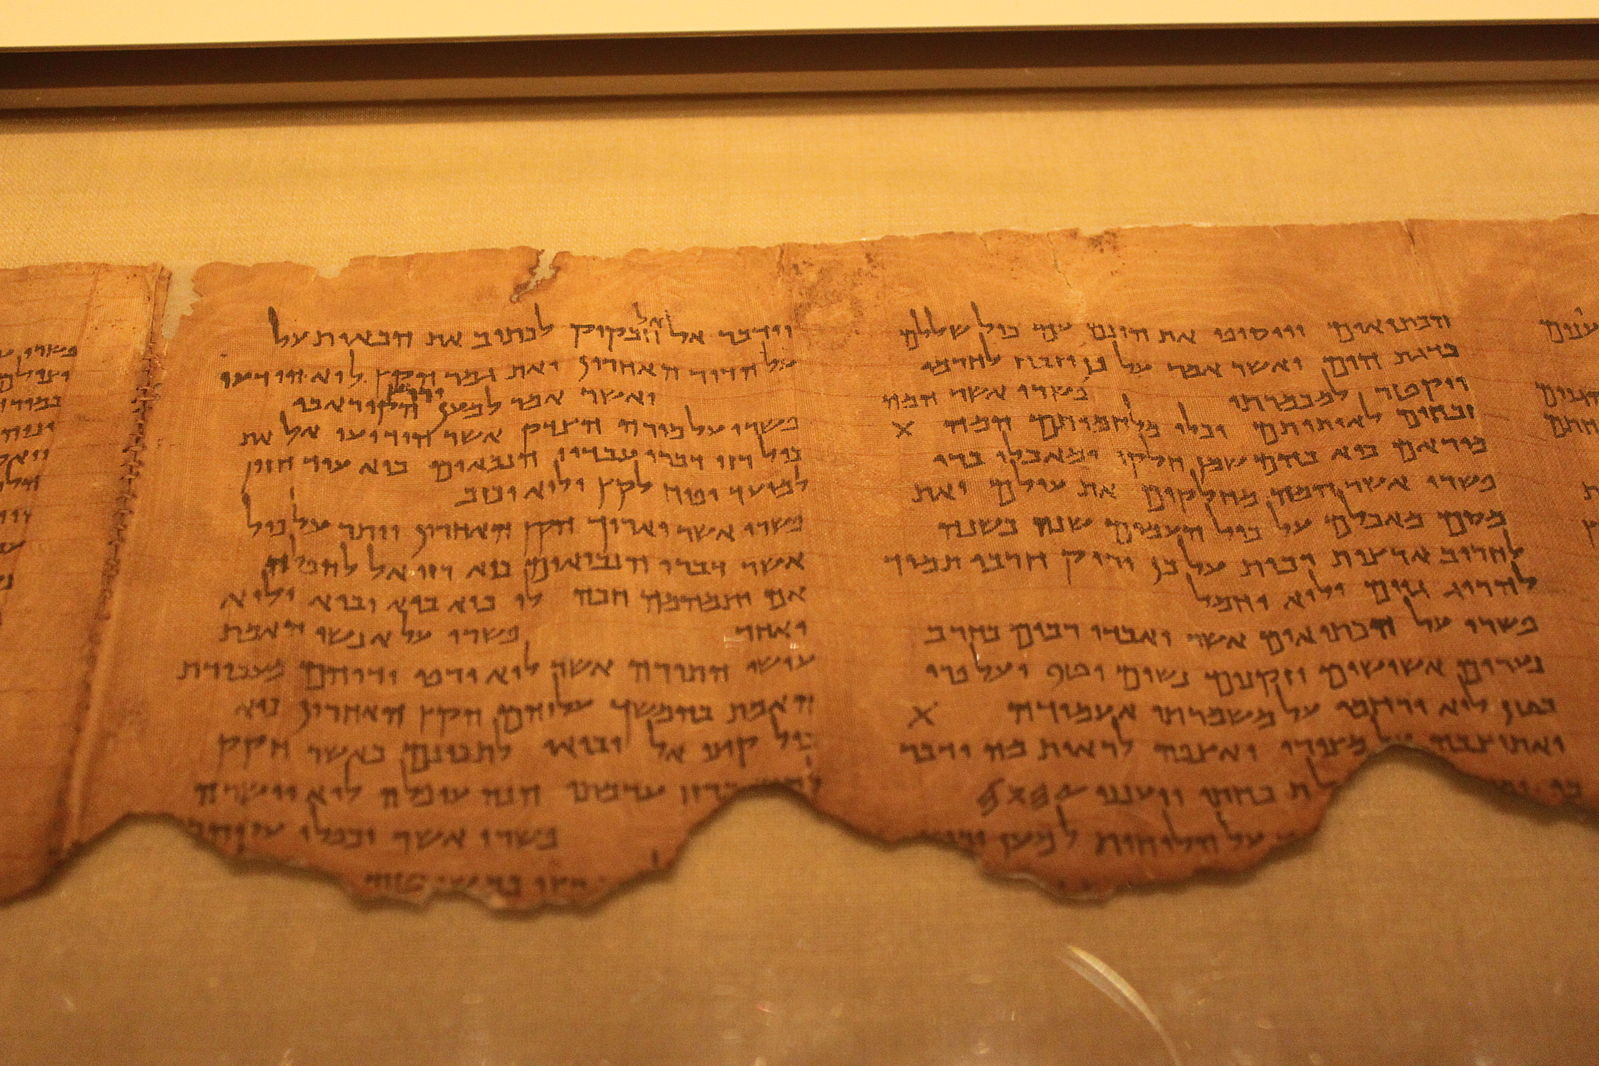 הכתיאים ויוסיפו את הונם עם כול שללם
כדגת הים ואשר אמר על כן יזבח לחרמו
ויקטר למכמרתו פשרו אשר המה
זבחים לאותותם וכלי מלחמותם המה X
מוראם כיא בהם שמן חלקו ומאכלו ברי
פשרו אשר המה מחלקים את עולם ואת
מסם מאכלם על כול העמים שנה בשנה
לחריב ארצות רבות על כן יריק חרבו תמיד
להרוג גוים ולוא יחמל
פשרו על הכתיאים אשר יאבדו רבים בחרב
נערים אשישים וזקנים נשים וטף ועל פרי
בטן לוא ירחמו על משמרתי אעמודה X
ואתיצבה על מצורי ואצפה לראות מה ידבר
בי תוכחתי ויענני 𐤉𐤄𐤅𐤄
על הלוחות למען ירוץ
וידבר אל אל חבקוק לכתוב את הבאות על
על הדור האחרון ואת גמר הקץ לוא הודעו
ואשר אמר למען ירוץ הקורא בו
פשרו על מורה הצדק אשר הודיעו אל את
כול רזי דברי עבדיו הנבאים כיא עוד חזון
למועד יפיח לקץ ולוא יכזב
פשרו אשר יארוך הקץ האחרון ויתר על כול
אשר דברו הנביאים כיא רזי אל להפלה
אם יתמהמה חכה לו כיא בוא יבוא ולוא
יאחר פשרו על אנשי האמת
עושי התורה אשר לוא ירפו ידיהם מעבודת
האמת בהמשך עליהם הקץ האחרון כיא
כול קיצי אל יבואו לתכונם כאשר חקק
ברזי ערמתו הנה עופלה לוא יושרה
פשרו אשר יכפלו עליהם